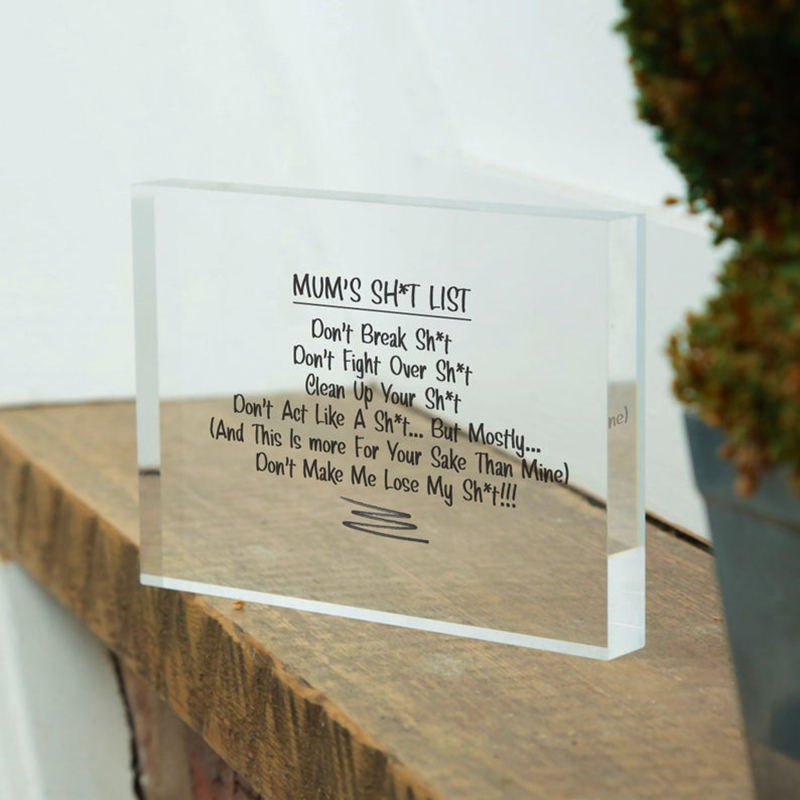 MUM'S SH*T LIST
Don't Break Sh*t
Don't Fight Over Sh*t
Clean Up Your Sh*t
Don't Act Like A Sh*t... But Mostly...
(And This Is more For Your Sake Than Mine)
Don't Make Me Lose My Sh*t!!!
ne)